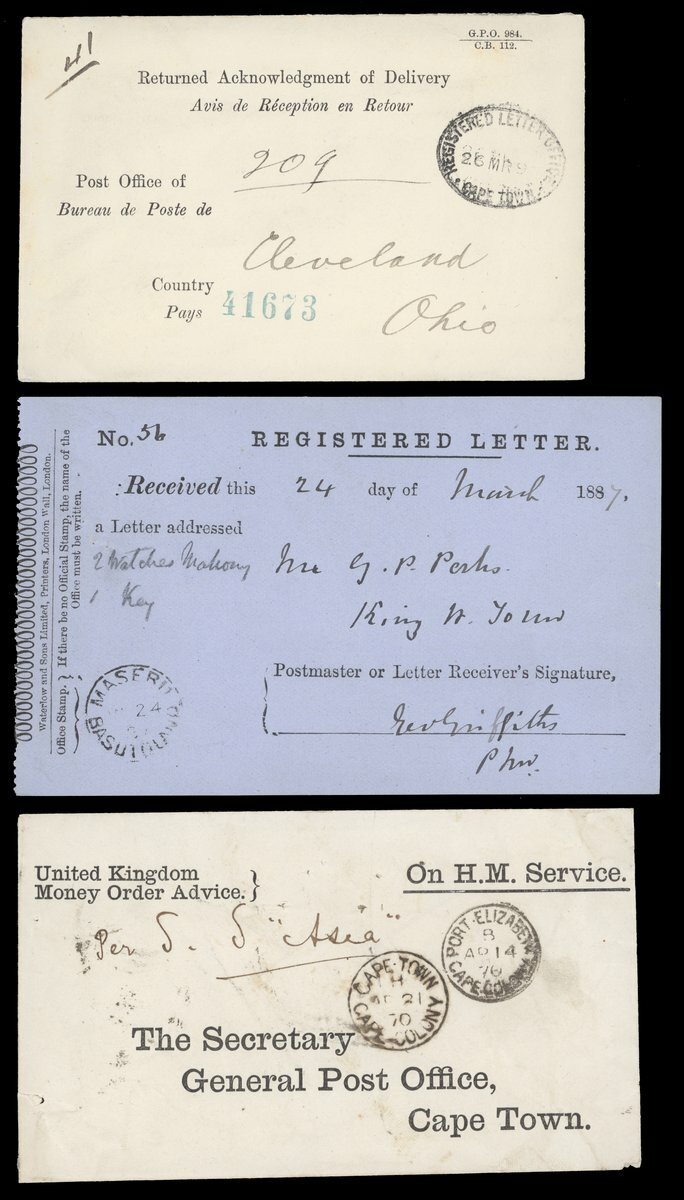 41
G.P.O. 984.
C.B. 112.
Returned Acknowledgment of Delivery
Avis de Réception en Retour
REGISTERED LETTER OFFICE
26 MR 9
CAPE TOWN
209
Post Office of
Bureau de Poste de
Cleveland
Country
Pays
41673
Ohio
No. 56
REGISTERED LETTER.
Received this 24 day of March 1887.
a Letter addressed
2 Watches Mahony
1 Key
Mr G. P. Perks.
King W. Town
Postmaster or Letter Receiver's Signature,
Geo Griffiths
P Mr.
Waterlow and Sons Limited, Printers, London Wall, London.
Office Stamp. { If there be no Official Stamp, the name of the
Office must be written. }
MASERU
24
BASUTOLAND
United Kingdom
Money Order Advice. }
On H.M. Service.
Per S. S "Asia"
PORT-ELIZABETH
B
AP 14
70
CAPE-COLONY
CAPE-TOWN
H
AP 21
70
CAPE-COLONY
The Secretary
General Post Office,
Cape Town.